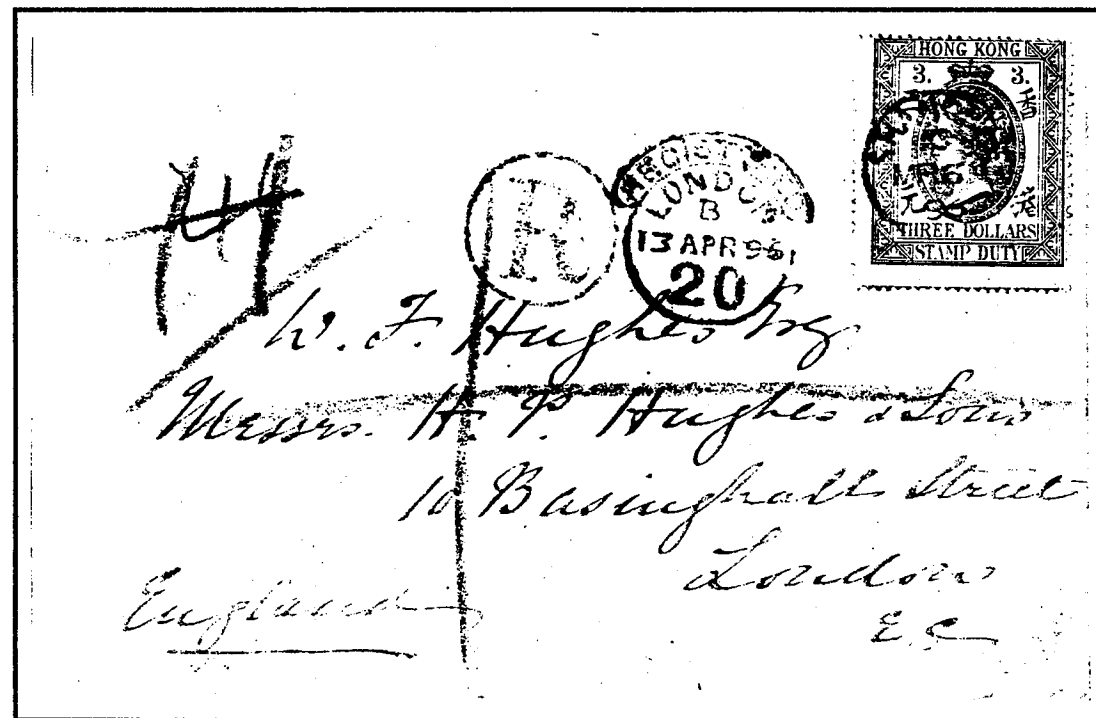 HONG KONG
3. 3.
香
港
THREE DOLLARS
STAMP DUTY
MR 6
H
R
REGISTERED
LONDON
B
13 APR 95
20
W. F. Hughes Esq
Messrs. H. P. Hughes & Sons
10 Basinghall Street
London
England
E.C